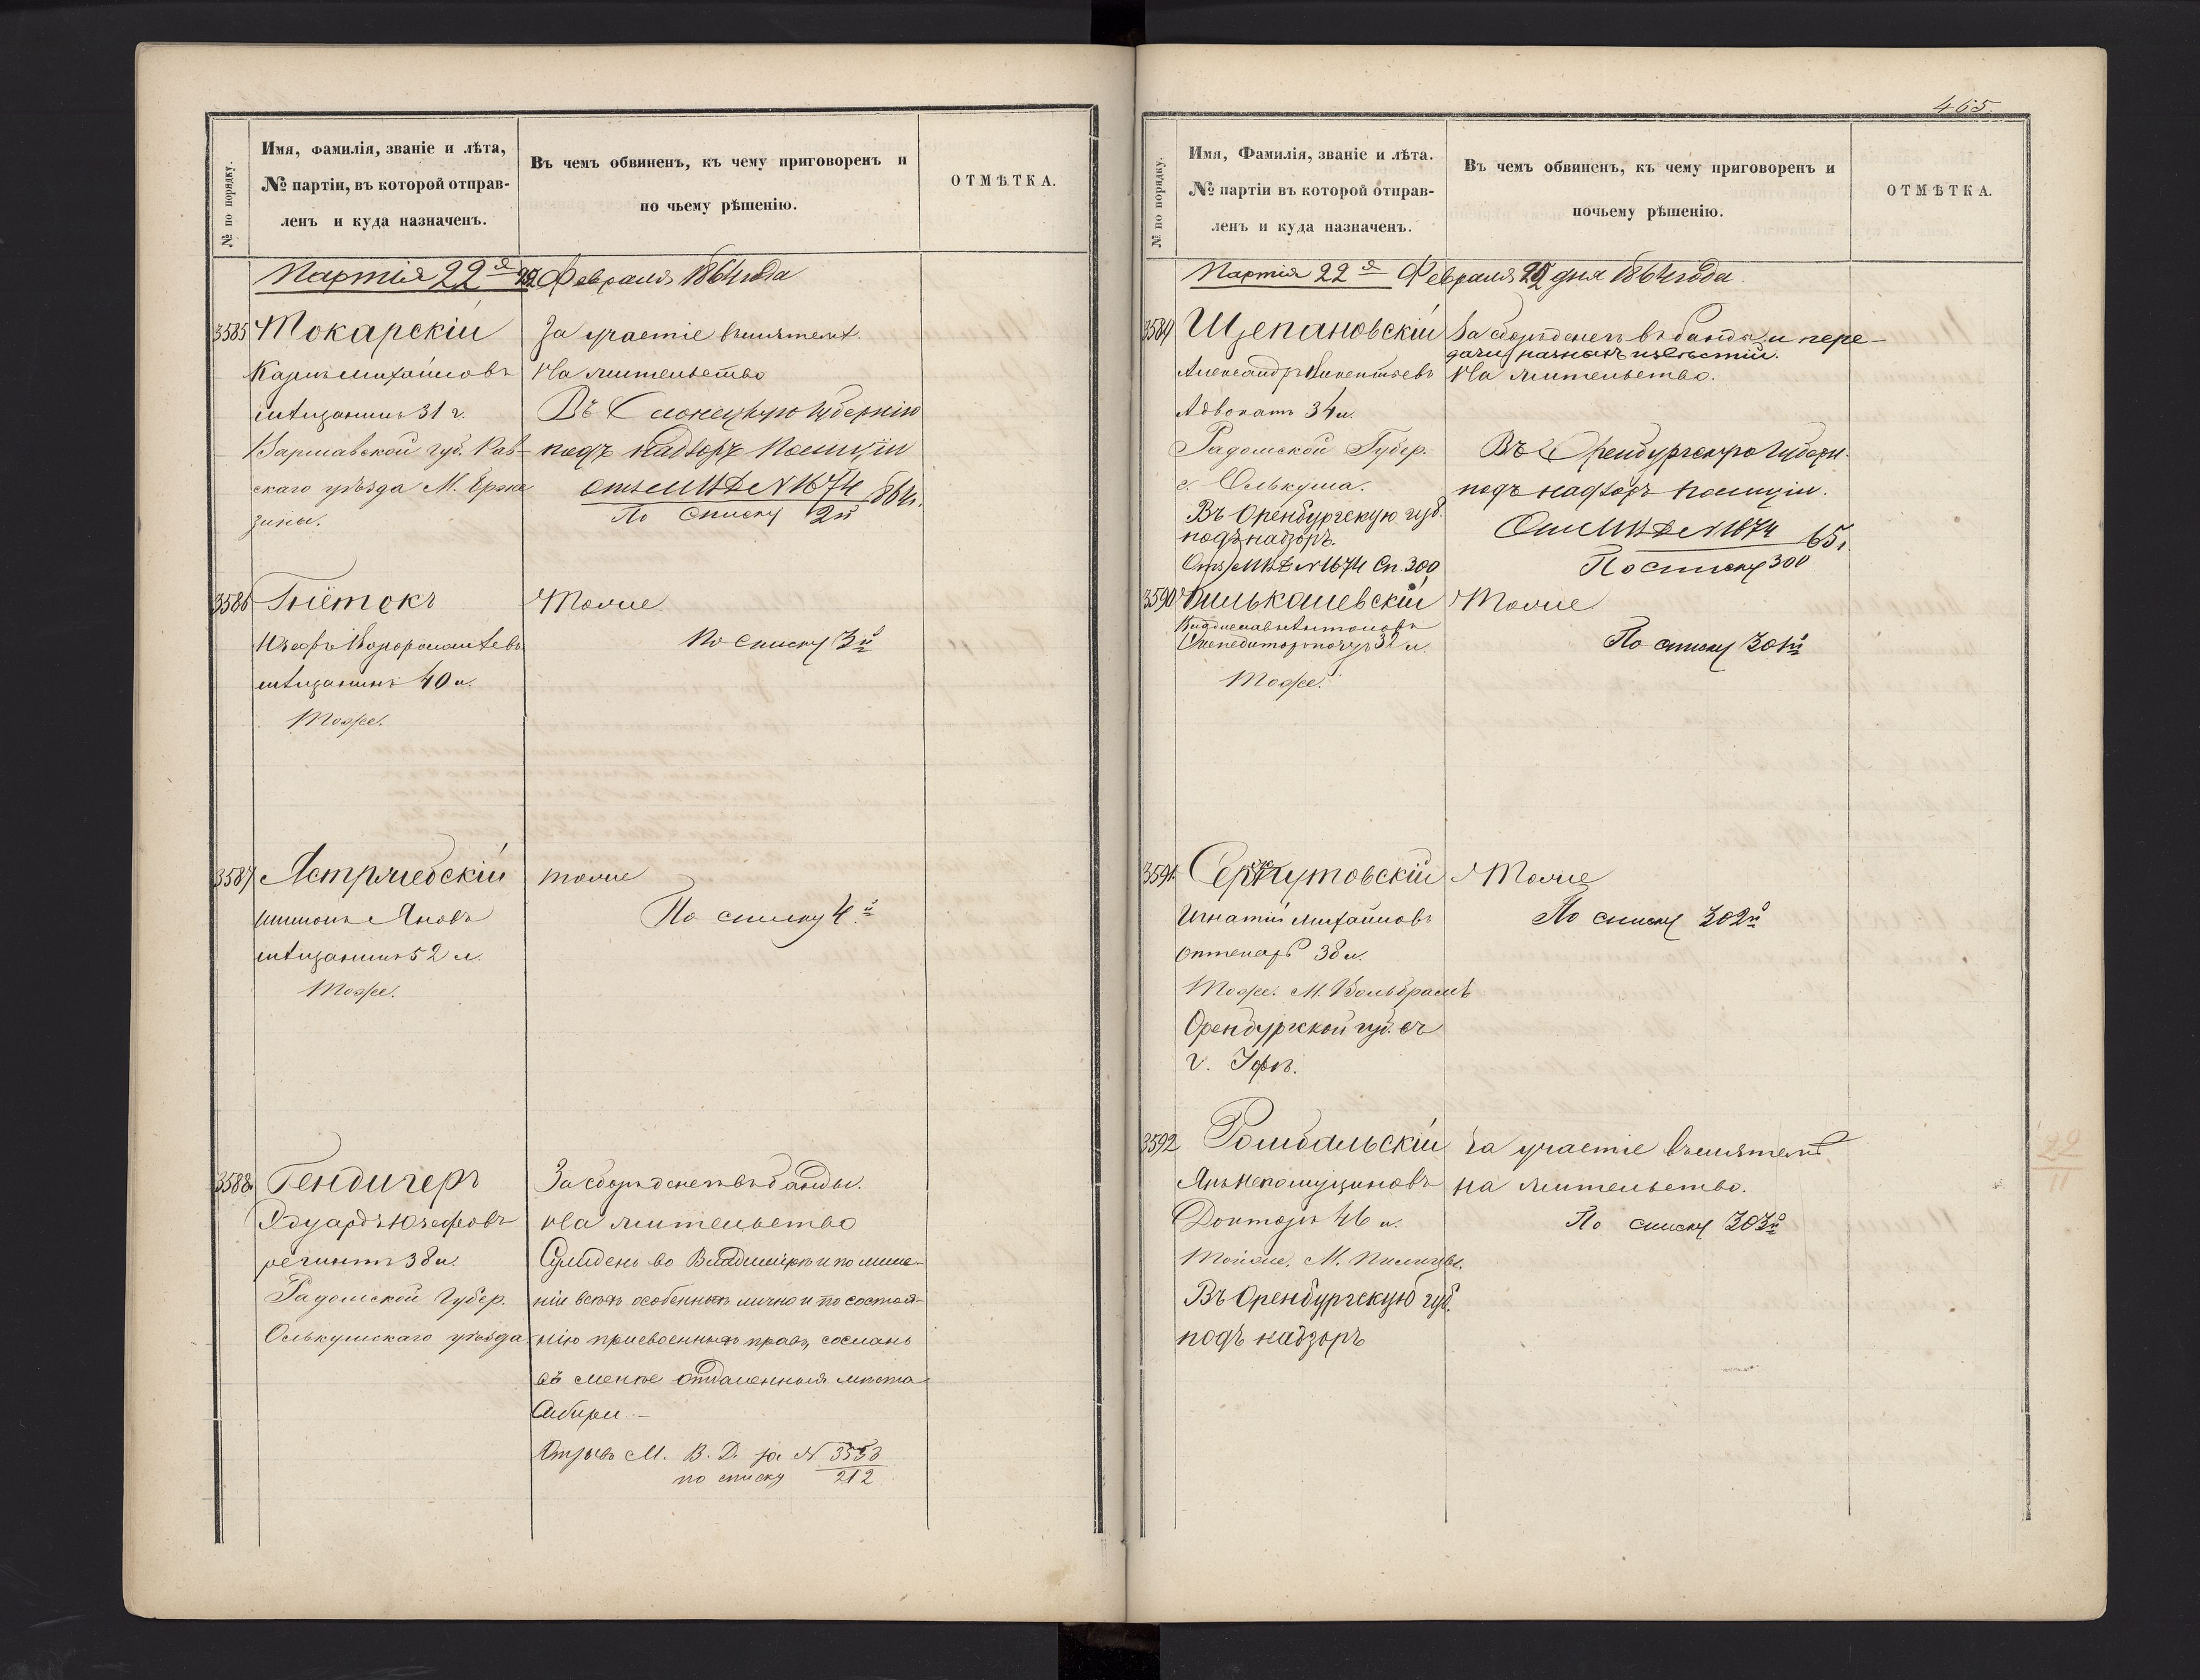 № по порядку.
Имя, Фамилія, званіе и лѣта,
№ партіи, въ которой отправ-
ленъ и куда назначенъ.
Въ чемъ обвиненъ, къ чему приговоренъ и
по чьему рѣшенію.
ОТМѢТКА.
Партія 22я Февраля 1864 года
3585 Токарскій
Карлъ Михайловъ
мѣщанинъ 31 г.
Варшавской губ. Рав-
скаго уѣзда М.
За участіе въ мятеж.
На жительство
Въ Олонецкую Губернію
подъ надзоръ Полиціи
отъ МВД N 1674 864 г.
По списку 2й
3586
мѣщанинъ 40 л.
Тоже.
Тоже
По списку 3й
3587 Ястржебскій
Шимонъ Яновъ
мѣщанинъ 52 л.
Тоже.
тоже
По списку 4й
3588 Гендигеръ
Эдуардъ Юзефовъ
38 л.
Радомской Губер.
Олькушскаго уѣзда
За сборъ денегъ въ банды.
На жительство
Сужденъ во Владимірѣ и по лише-
ніи всѣхъ особенныхъ лично и по состоя-
нію присвоенныхъ правъ, сосланъ
въ менѣе отдаленныя мѣста
Сибири.
Отзывъ М. В. Д. за N 3553
по списку 212
465.
№ по порядку.
Имя, Фамилія, званіе и лѣта.
№ партіи въ которой отправ-
ленъ и куда назначенъ.
Въ чемъ обвиненъ, къ чему приговоренъ и
почьему рѣшенію.
ОТМѢТКА.
Партія 22я Февраля дня 1864 года
3589 Щепановскій
Александръ Викентьевъ
Адвокатъ 34 л.
Радомской Губер.
г. Олькуша.
Въ Оренбургскую губ.
подъ надзоръ.
Отз. МВД N 1674 Сп. 300
За сборъ денегъ въ банды и пере-
дачи разныхъ извѣстій.
На жительство.
Въ Оренбургскую Губерн.
подъ надзоръ полиціи.
От. МВД N 1674 65 г.
По списку 300
3590
Владиславъ Антоновъ
Экспедиторъ почтъ 32 л.
Тоже.
Тоже
По списку 301й
3591
Игнатій Михайловъ
аптекарь 38 л.
Тоже. М. Вольбрамъ
Оренбургской губ. въ
г. Уфѣ.
Тоже
По списку 302й
3592 Ромбальскій
Янъ Непомуциновъ
Докторъ 46 л.
Тойже, М. Пилицы.
Въ Оренбургскую губ.
подъ надзоръ
За участіе въ мятежѣ
на жительство.
По списку 303й
22
11